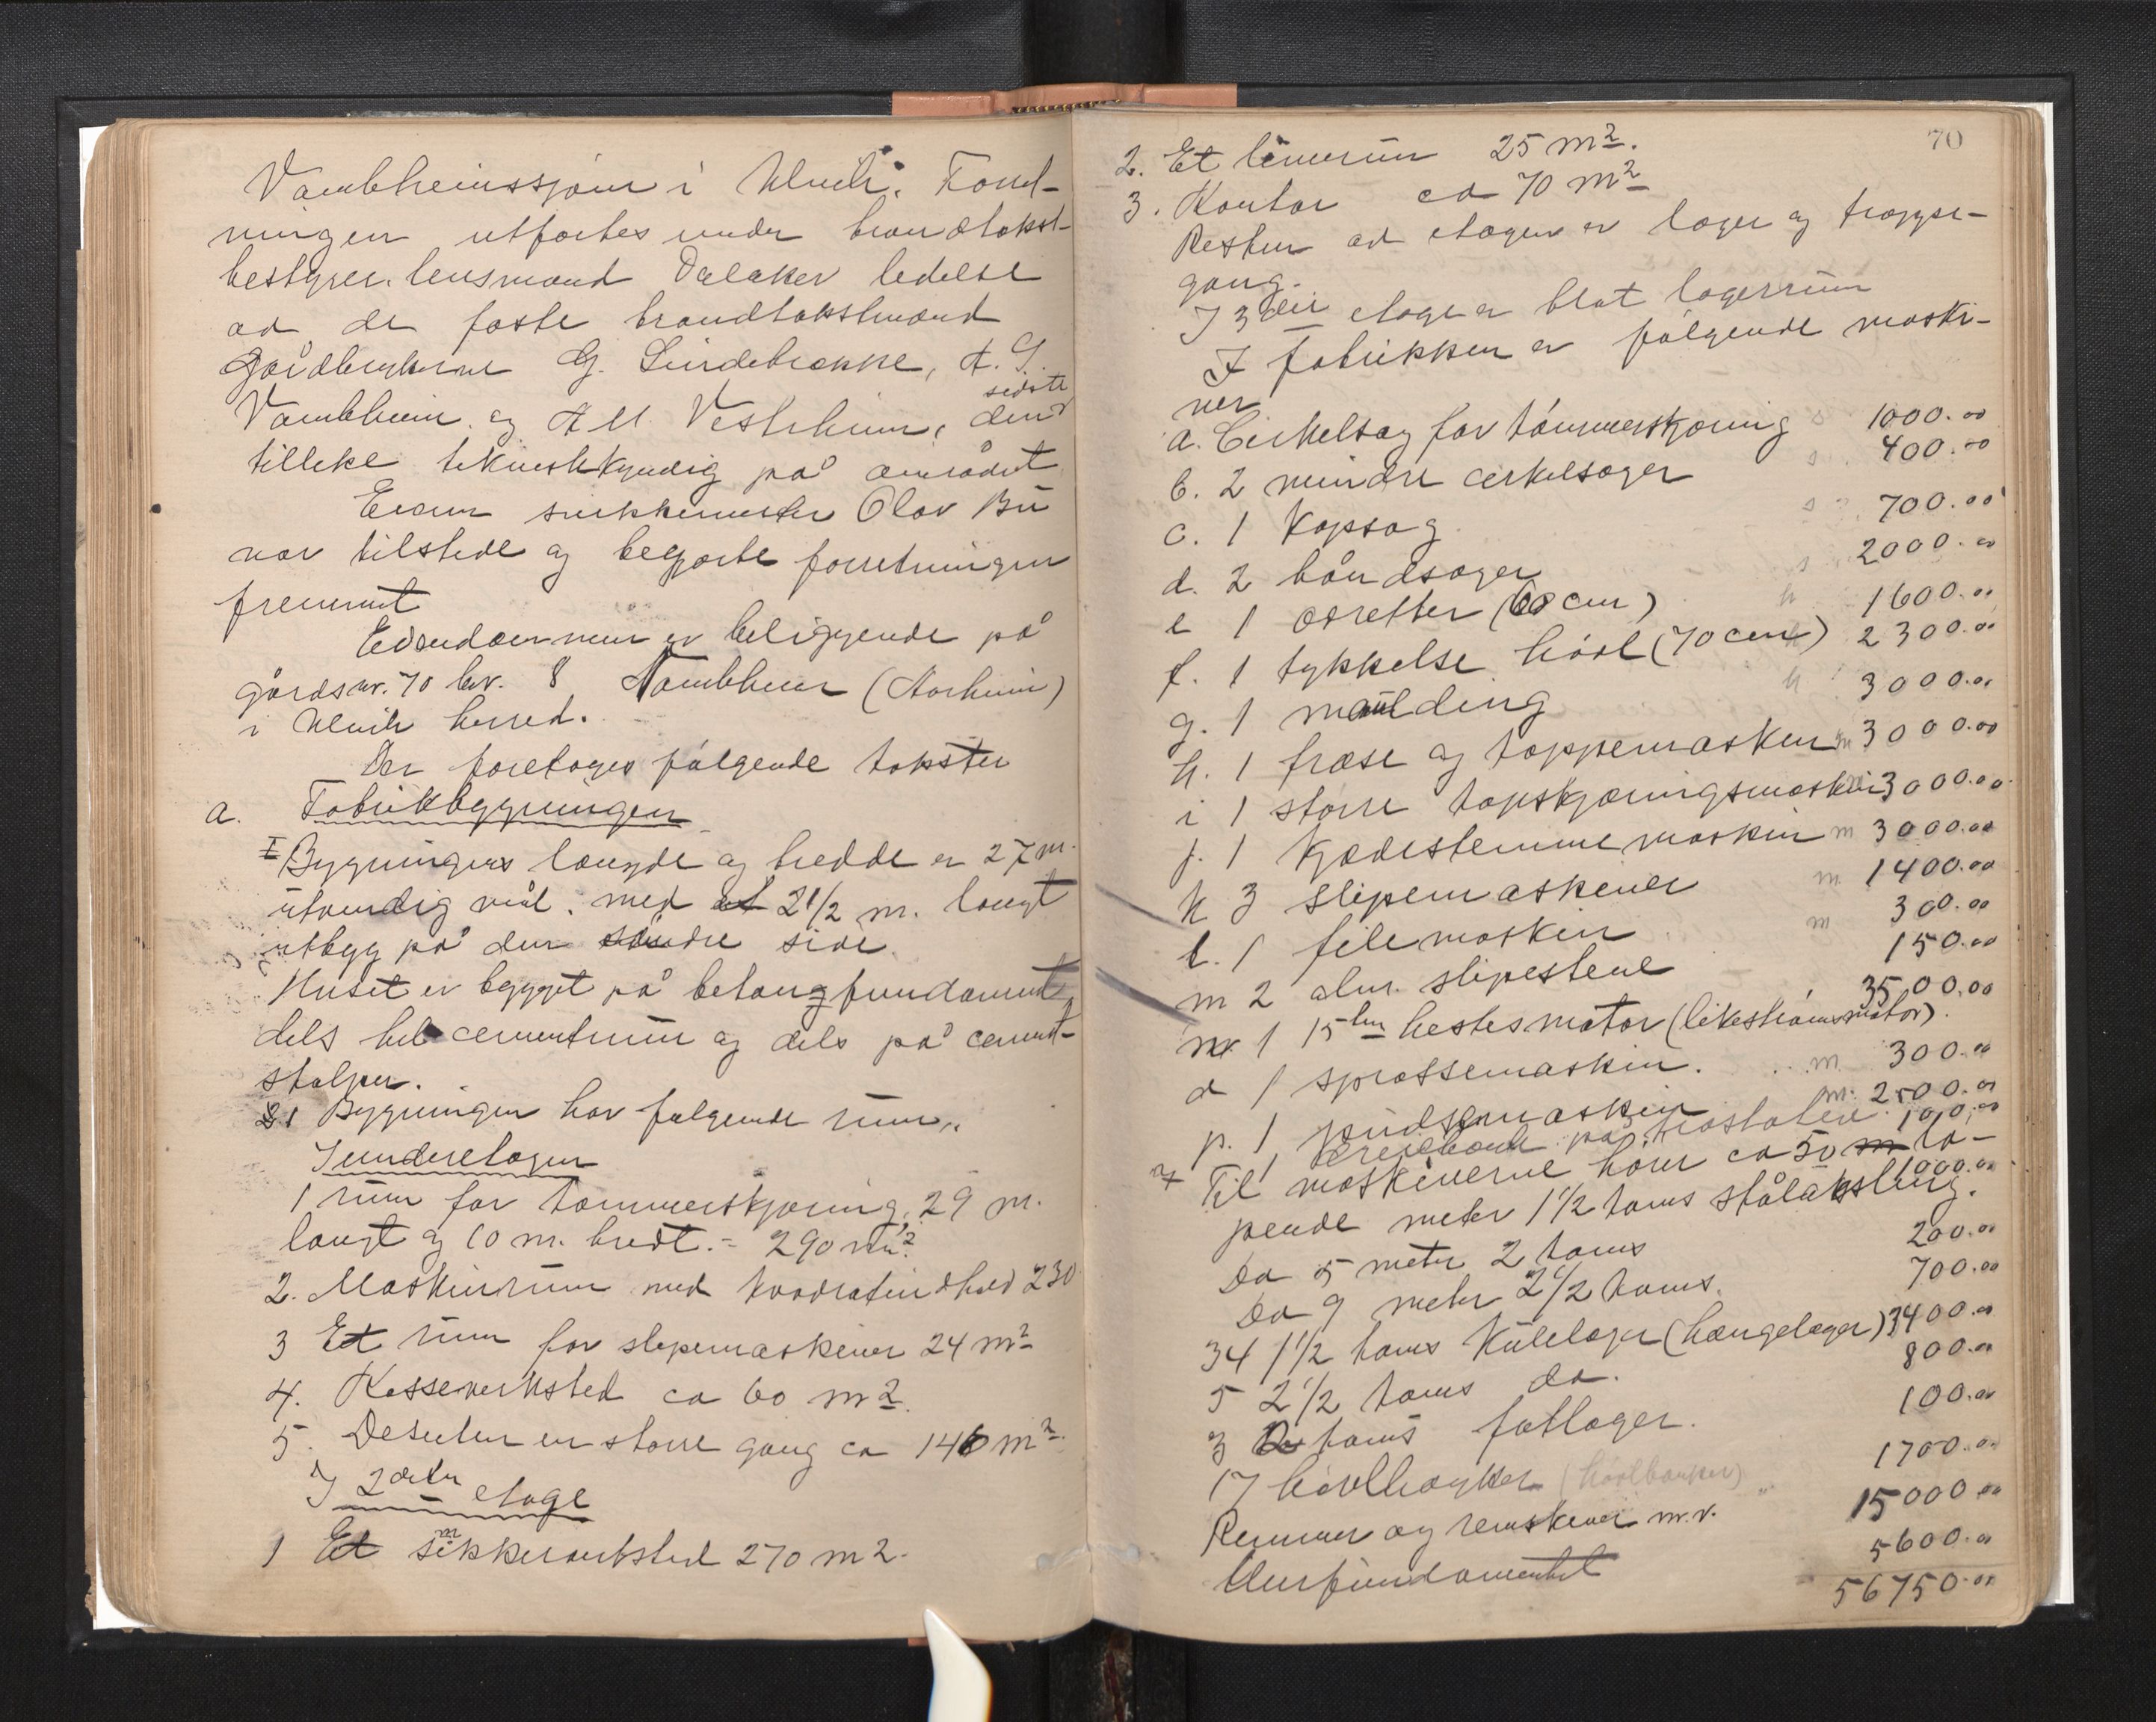 Vambheimssjøen i Ulvik. Forret-
ningen utførtes under brandtakst-
bestyrer, lensmand Dalaker ledelse
av de faste brandtakstmænd
gårdbrukerne G. Lindebrække, A. G.
Vambheim og A. M. Vestrheim, den sidste
tillike teknisk kyndig på området
Eieren snekkermester Olav Bu
var tilstede og begjærte forretningen
fremmet
Eiendommen er beliggende på
gårdsnr. 70 brnr. 8 Vambheim (Aarheim)
i Ulvik herred.
Der foretages følgende takster
a. Fabrikbygningen
I Bygningens længde og bredde er 27 m.
utvendig mål, med et 2 1/2 m. langt
utbygg på den søndre side.
Huset er bygget på betongfundament
dels hel cementmur og dels på cement-
stolper.
2. Bygningen har følgende rum:
I underetagen
1 rum for tømmerskjæring, 29 m.
langt og 10 m. bredt. = 290 m2.
2. Maskinrum med kvadratindhold 230
3 Et rum for slipemaskiner 24 m2
4. Kasseverksted ca 60 m2
5. Desuten en større gang ca 146 m2.
I 2den etage
1 Et snikkerverksted 270 m2.
70
2. Et limerum 25 m2.
3. Kontor ca 70 m2
Resten av etagen er lager og trappe-
gang.
I 3die etage er blot lagerrum
I fabrikken er følgende maski-
ner
a. Cirkelsag for tømmerskjæring s 1000.00
b. 2 mindre cirkelsager s 400.00
c. 1 Kapsag s 700.00
d. 2 båndsager s 2000.00
e 1 avretter (60 cm) h 1600.00
f. 1 tykkelse høvl (70 cm) h 2300.00
g. 1 maulding h 3000.00
h. 1 fræse og tappemaskin m 3000.00
i 1 større tapskjæringsmaskin 3000.00
j. 1 Kjædestemmemaskin m 3000.00
k 3 slipemaskiner m 1400.00
l. 1 filemaskin m 300.00
m 2 alm. slipestene 150.00
n 1 15ten hestesmotor (likestrømsmotor). 3500.00
o 1 sprossemaskin. m. 300.00
p. 1 pudsemaskin m. 2500.00
1 Dreiebænk på træstativ 100.00
Til maskinerne hører ca 50 m lø-
pende meter 1 1/2 toms stålaksling. 1000.00
Do 5 meter 2 toms 200.00
Do 9 meter 2 1/2 toms. 700.00
34 1 1/2 toms Kulelager (hængelager) 3400.00
5 2 1/2 toms do. 800.00
3 2 toms fotlager. 100.00
17 høvlbænker (høvlbænker) " 1700.00
Remmer og remskiver m.v. 15000.00
Murfundamentet 5600.00
56750.00